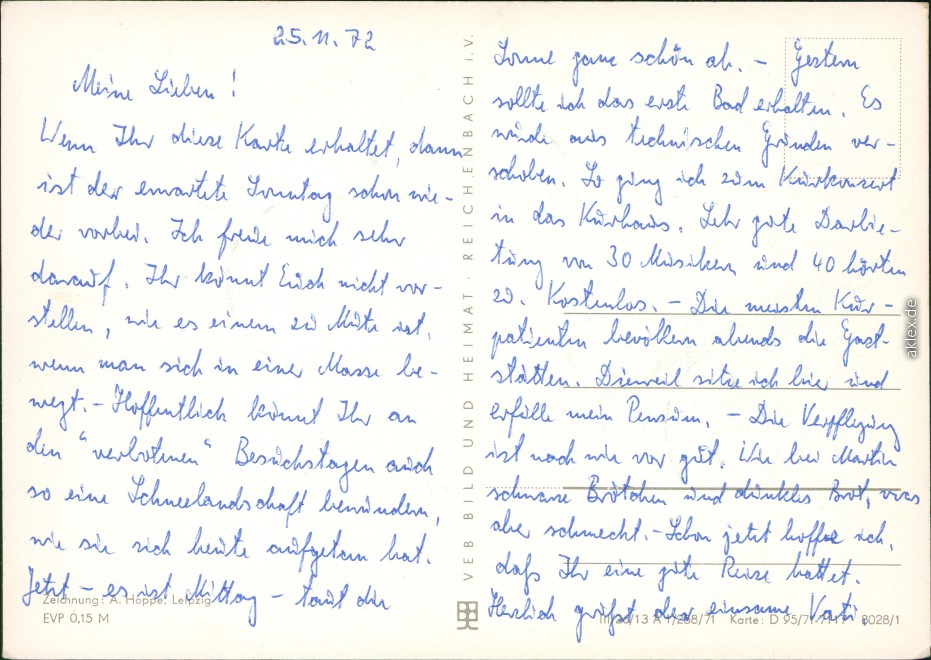 25.11.72
Meine Lieben!
Wenn Ihr diese Karte erhaltet, dann
ist der erwartete Sonntag schon wie-
der vorbei. Ich freue mich sehr
darauf. Ihr könnt Euch nicht vor-
stellen, wie es einem zu Mute ist,
wenn man sich in einer Masse be-
wegt. - Hoffentlich könnt Ihr an
den "verbotenen" Besuchstagen auch
so eine Schneelandschaft bewundern,
wie sie sich heute aufgetan hat.
Jetzt - es ist Mittag - taut die
Zeichnung: A. Hoppe, Leipzig
EVP 0,15 M
VEB BILD UND HEIMAT · REICHENBACH i. V.
Sonne ganz schön ab. - Gestern
sollte ich das erste Bad erhalten. Es
wurde aus technischen Gründen ver-
schoben. So ging ich zum Kurkonzert
in das Kurhaus. Sehr gute Darbie-
tung von 30 Musikern und 40 hörten
zu. Kostenlos. - Die meisten Kur-
patienten bevölkern abends die Gast-
stätten. Dieweil sitze ich hier und
erfülle mein Pensum. - Die Verpflegung
ist nach wie vor gut. Wie bei Martin
schwarze Brötchen und dunkles Brot, was
aber schmeckt. - Schon jetzt hoffe ich,
daß Ihr eine gute Reise hattet.
Herzlich grüßt der einsame Vati.
A 1/268/71 Karte: D 95/71 8028/1
aklex.de